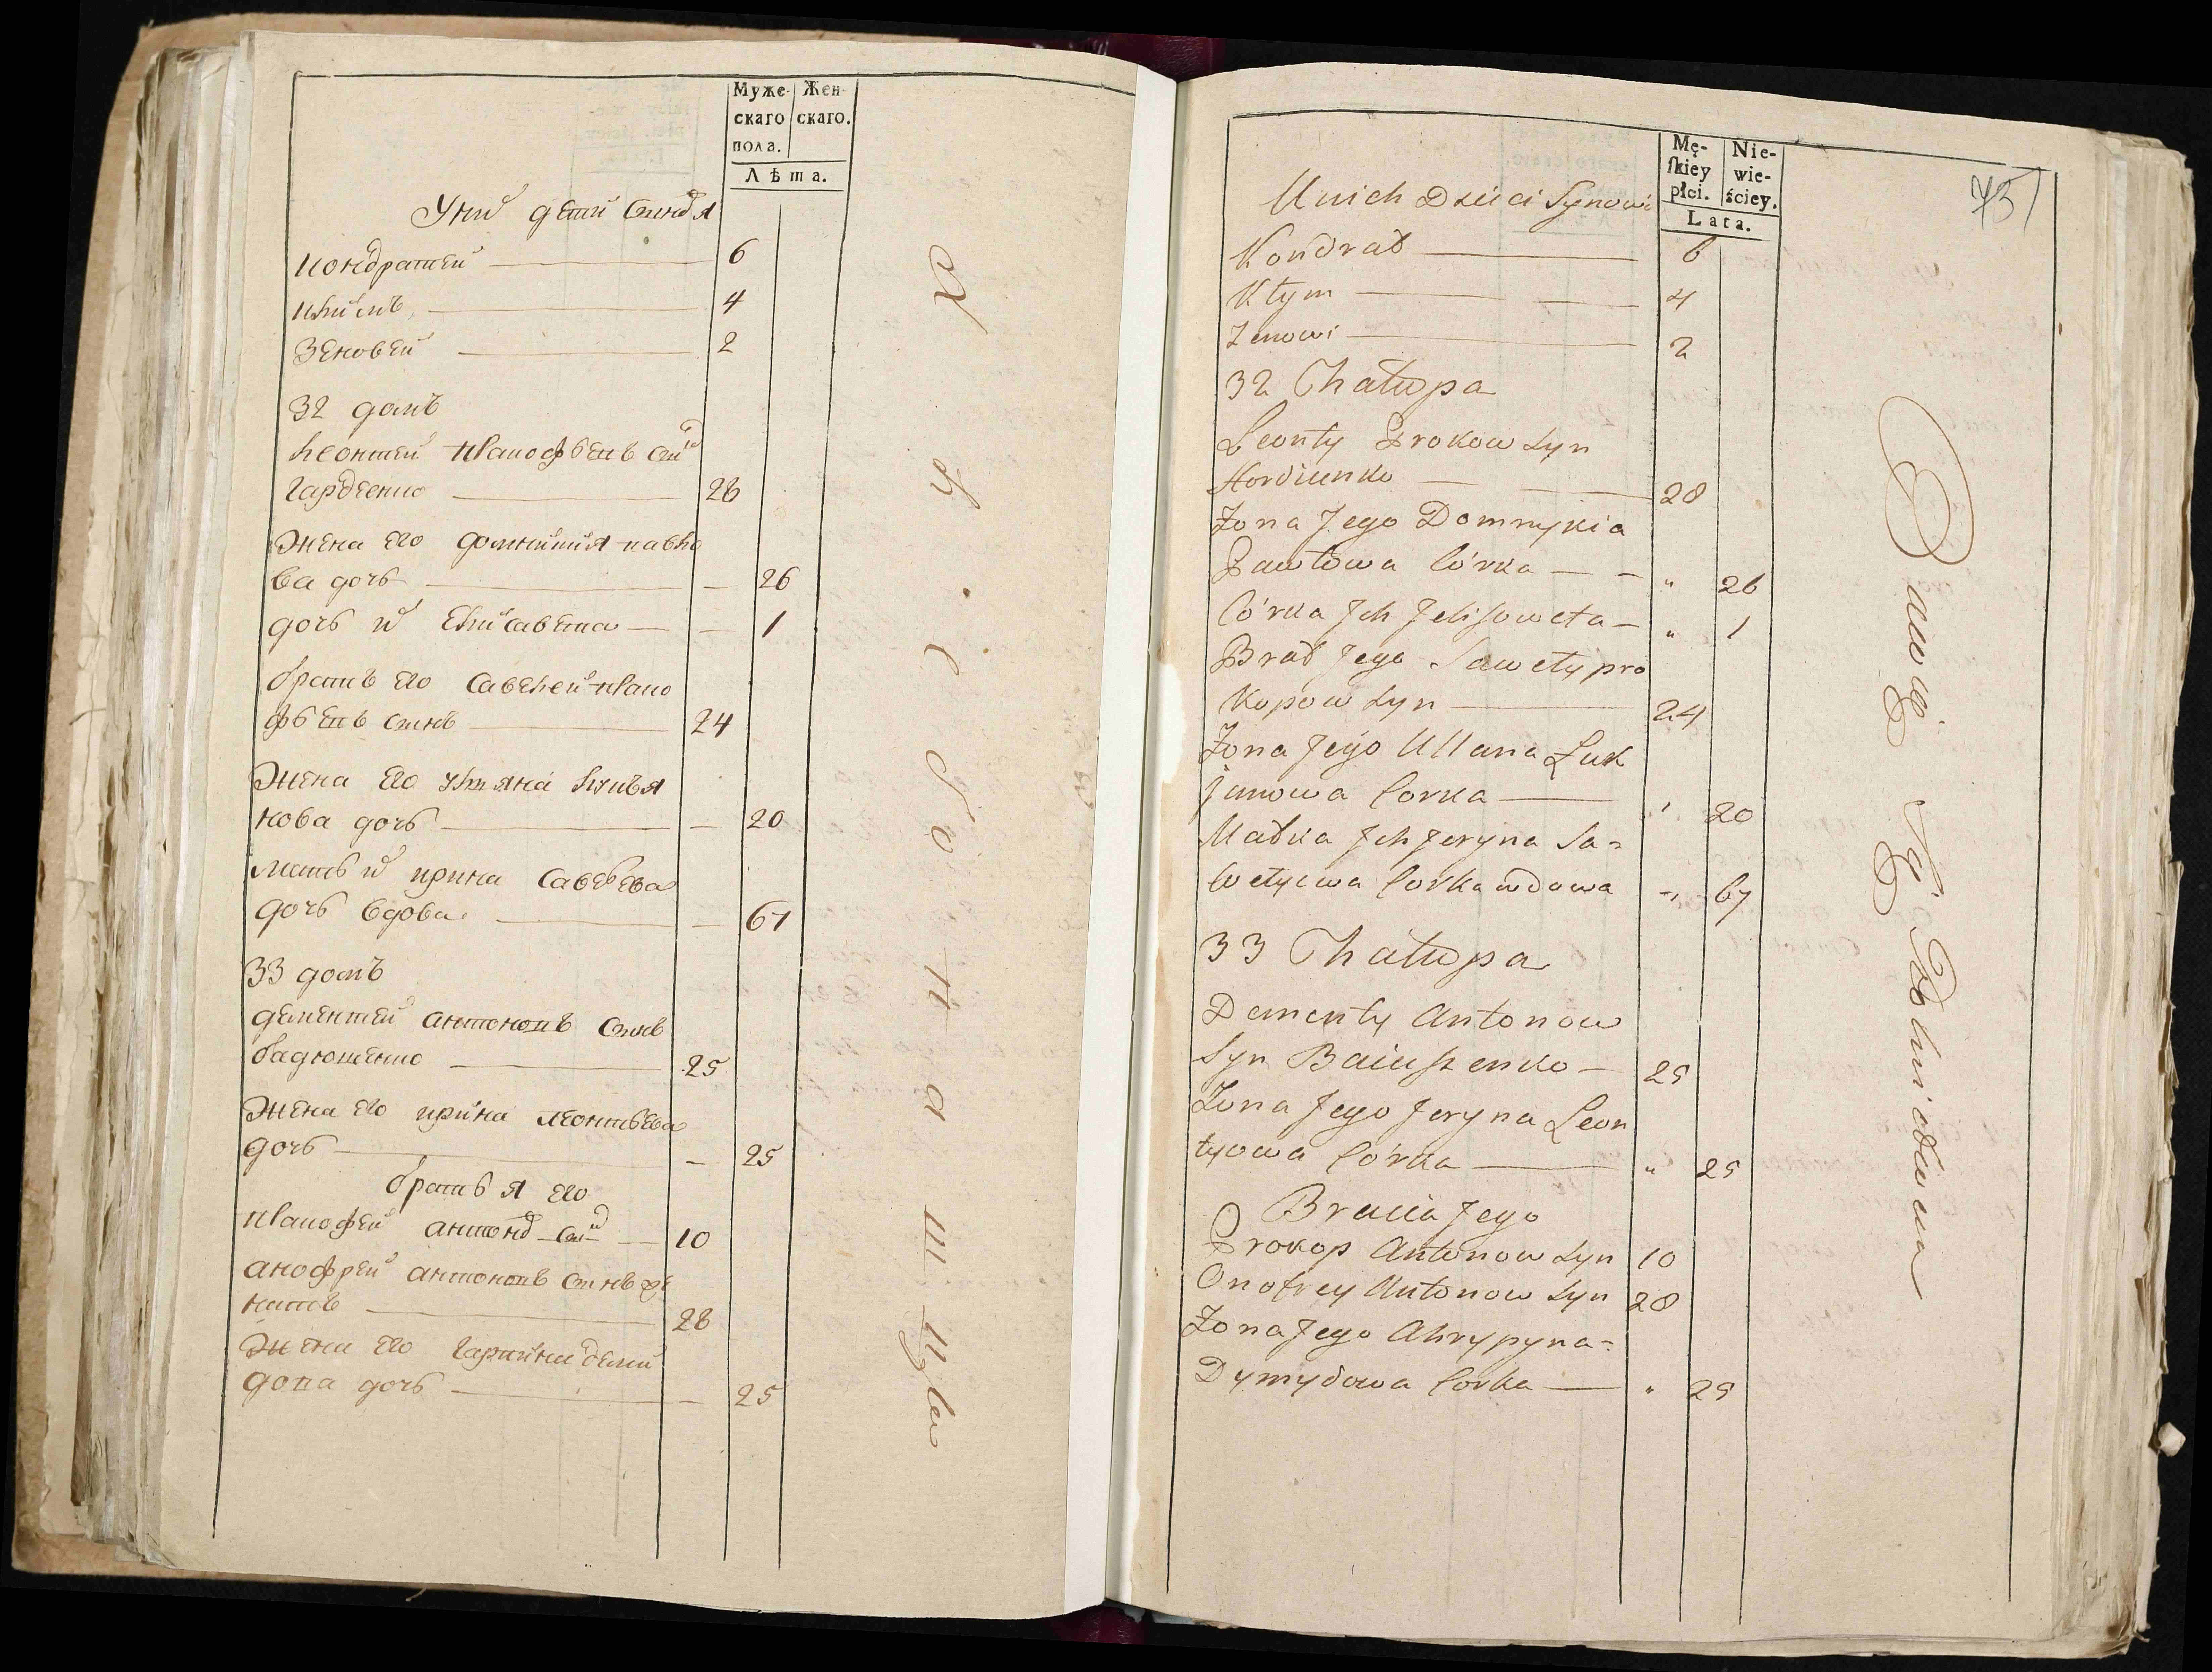 Муже-
скаго
пола.
Жен-
скаго.
Лѣта.
У нихъ дети Синовя
Кондратей 6
Климъ 4
Зеновей 2
32 домъ
Леонтей Пранофьевъ Синъ
Гардеенко 28
Жена его домникия павло
ва дочь — 26
дочь ихъ Елисавета — 1
братъ его Савелей Прано
фьевъ Синъ 24
Жена его Ульяна лукья
нова дочь — 20
мать ихъ ирина Савельева
дочь вдова — 67
33 домъ
дементей антоновъ Синъ
бадюшенко 25
Жена его ирина леонтьева
дочь — 25
братья его
Пранофей антоновъ Синъ 10
анофрей антоновъ Синъ
28
Жена его Гарпина деми
дова дочь — 25
Mę-
ſkiey
płci.
Nie-
wie-
ściey.
Lata.
75
U nich Dzieci Synowi
Kondrat 6
Klym 4
Zenowi 2
32 Chałupa
Leonty Prokow Syn
Hordiienko 28
Zona Jego Domnykia
Pawłowa Córka — — „ 26
Córka Jch Jelisoweta — „ 1
Brat Jego Sawety pro
kopow Syn 24
Zona Jego Ullana Luk
janowa Corka 20
Matka Jch Jeryna Sa=
wetyewa Corka wdowa 67
33 Chałupa
Dementy Antonow
Syn Baiuszenko — 25
Zona Jego Jeryna Leon
tyowa Córka „ 25
Bracia Jego
Prokop Antonow Syn 10
Onofrey Antonow Syn 28
Zona Jego Ahrypyna=
Dymydowa Corka „ 25